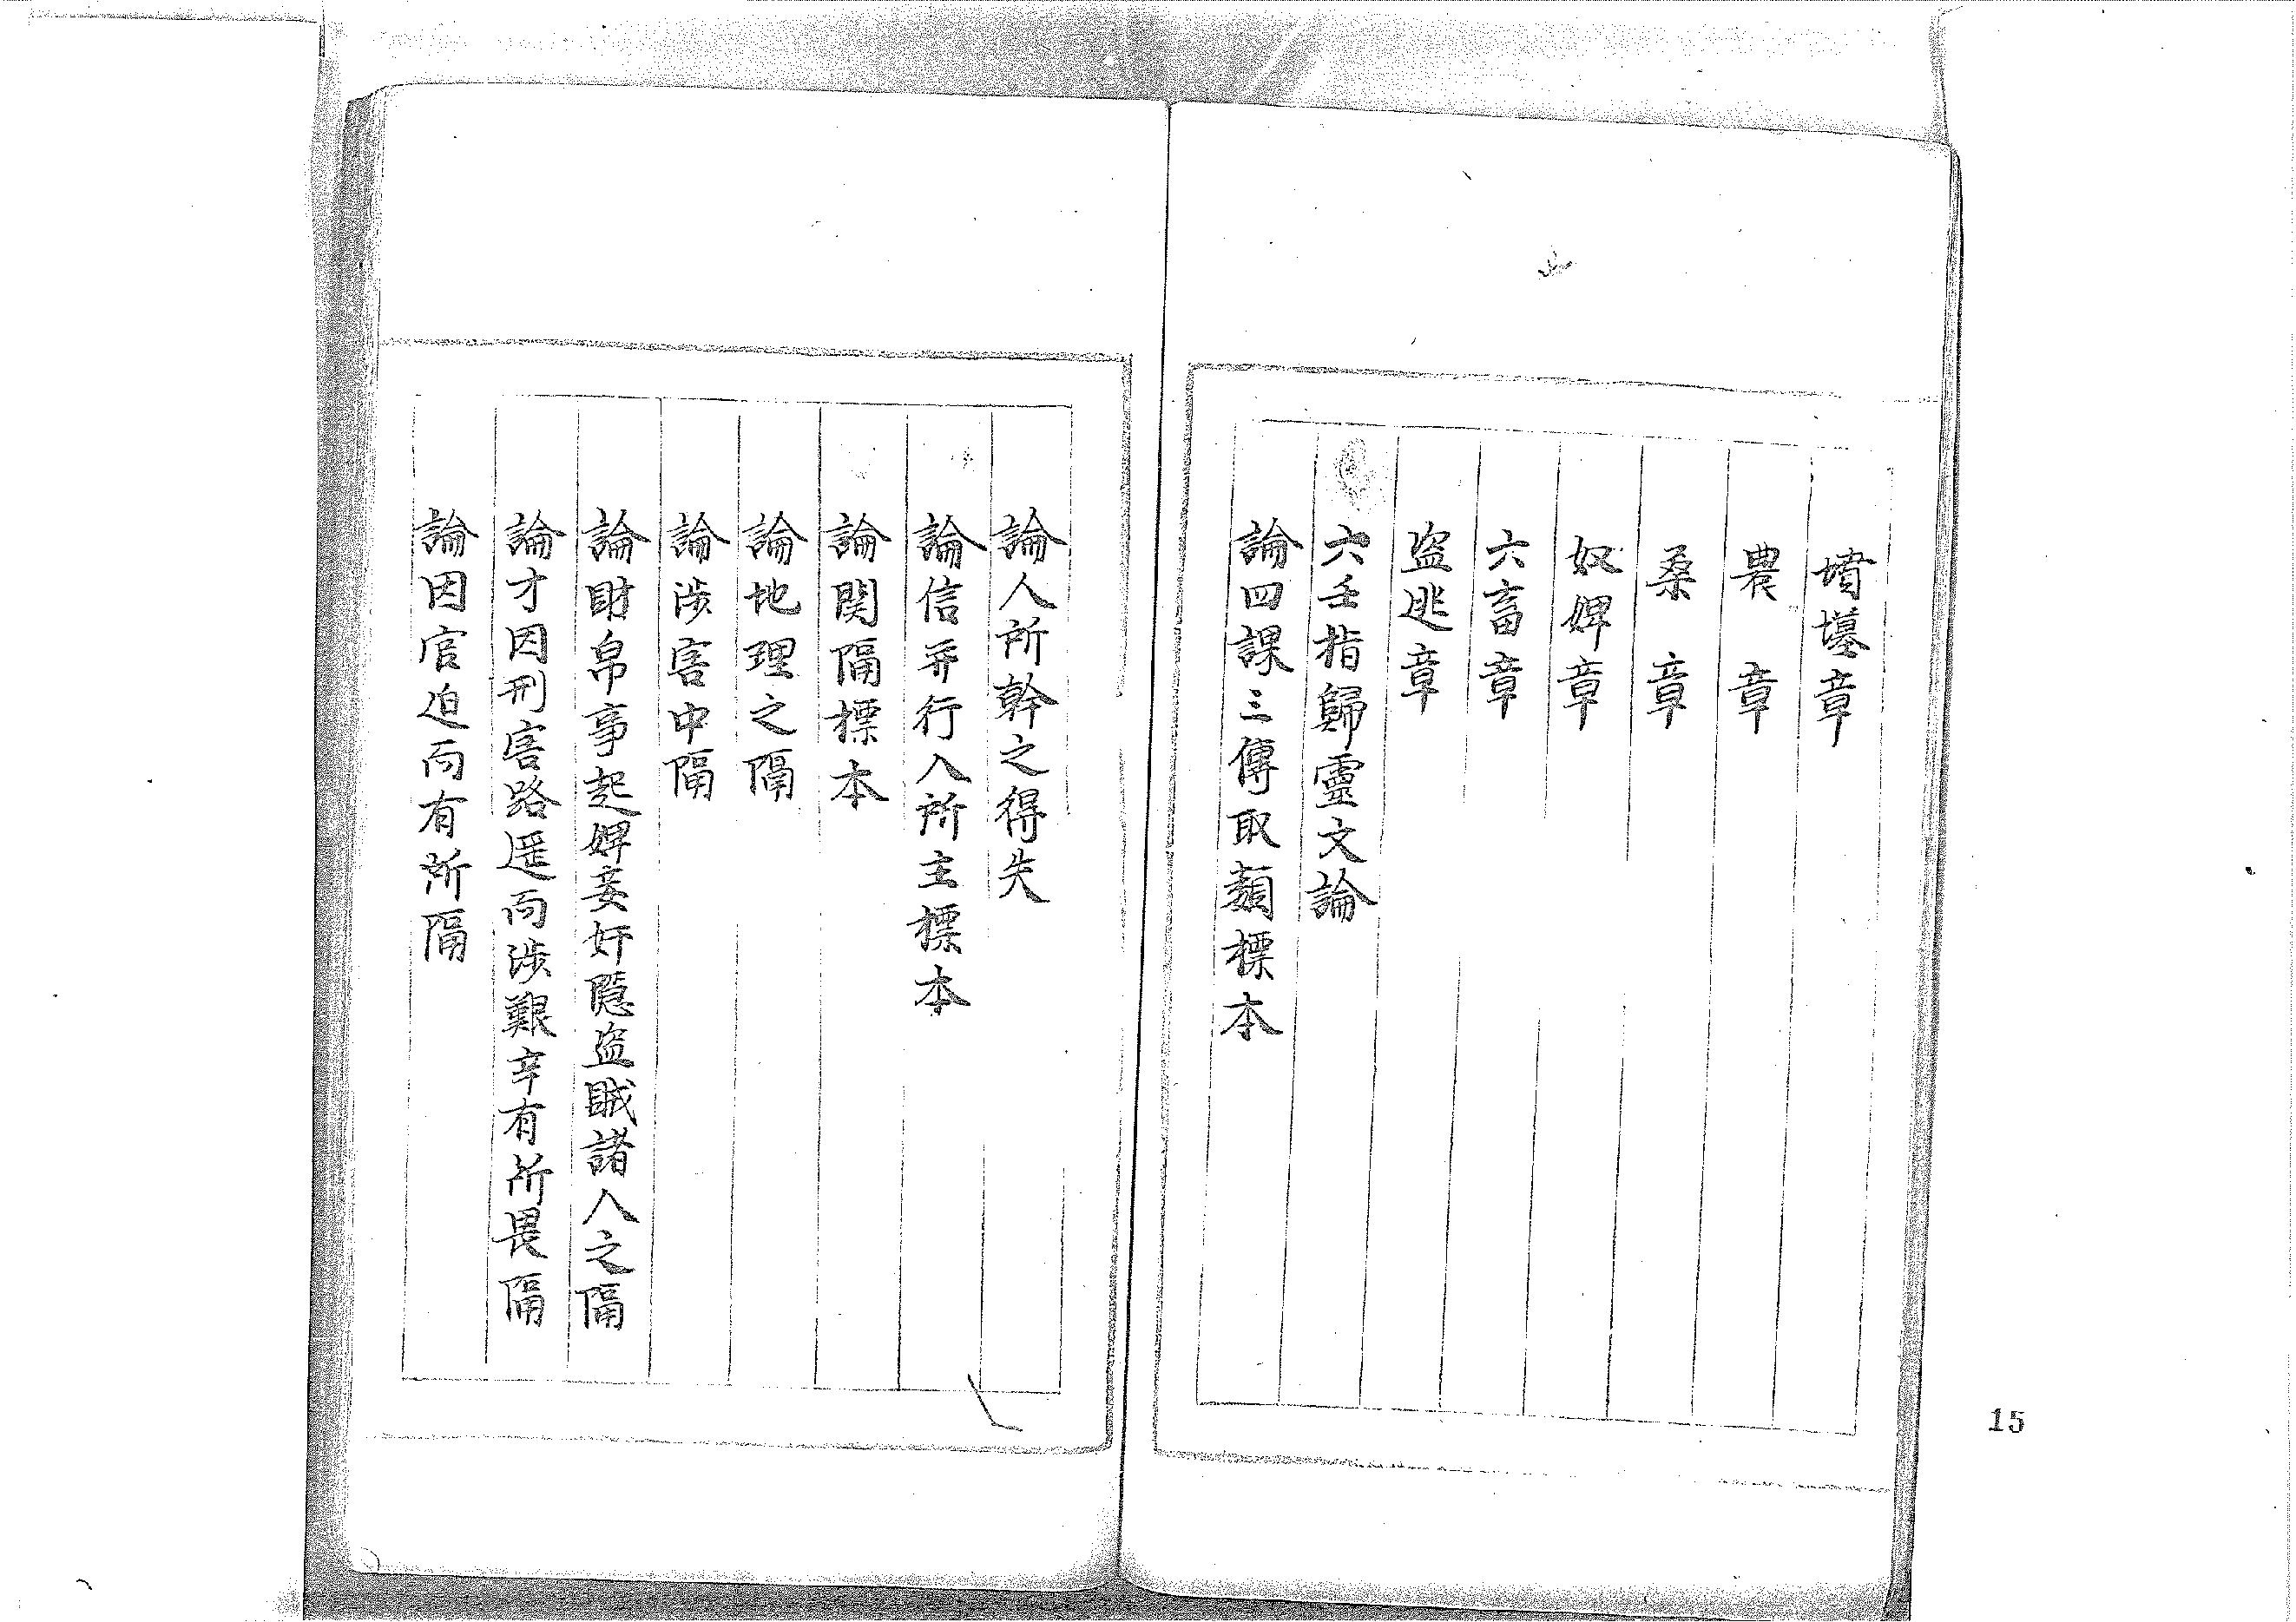 墳墓章
農　章
桑　章
奴婢章
六畜章
盗逃章
六壬指歸靈文論
論四課三傳取類標本
論人所幹之得失
論信并行人所主標本
論関隔標本
論地理之隔
論涉害中隔
論財帛事起婢妾奸隱盗賊諸人之隔
論才因刑害路遥而涉艱辛有所畏隔
論因官迫而有所隔
15